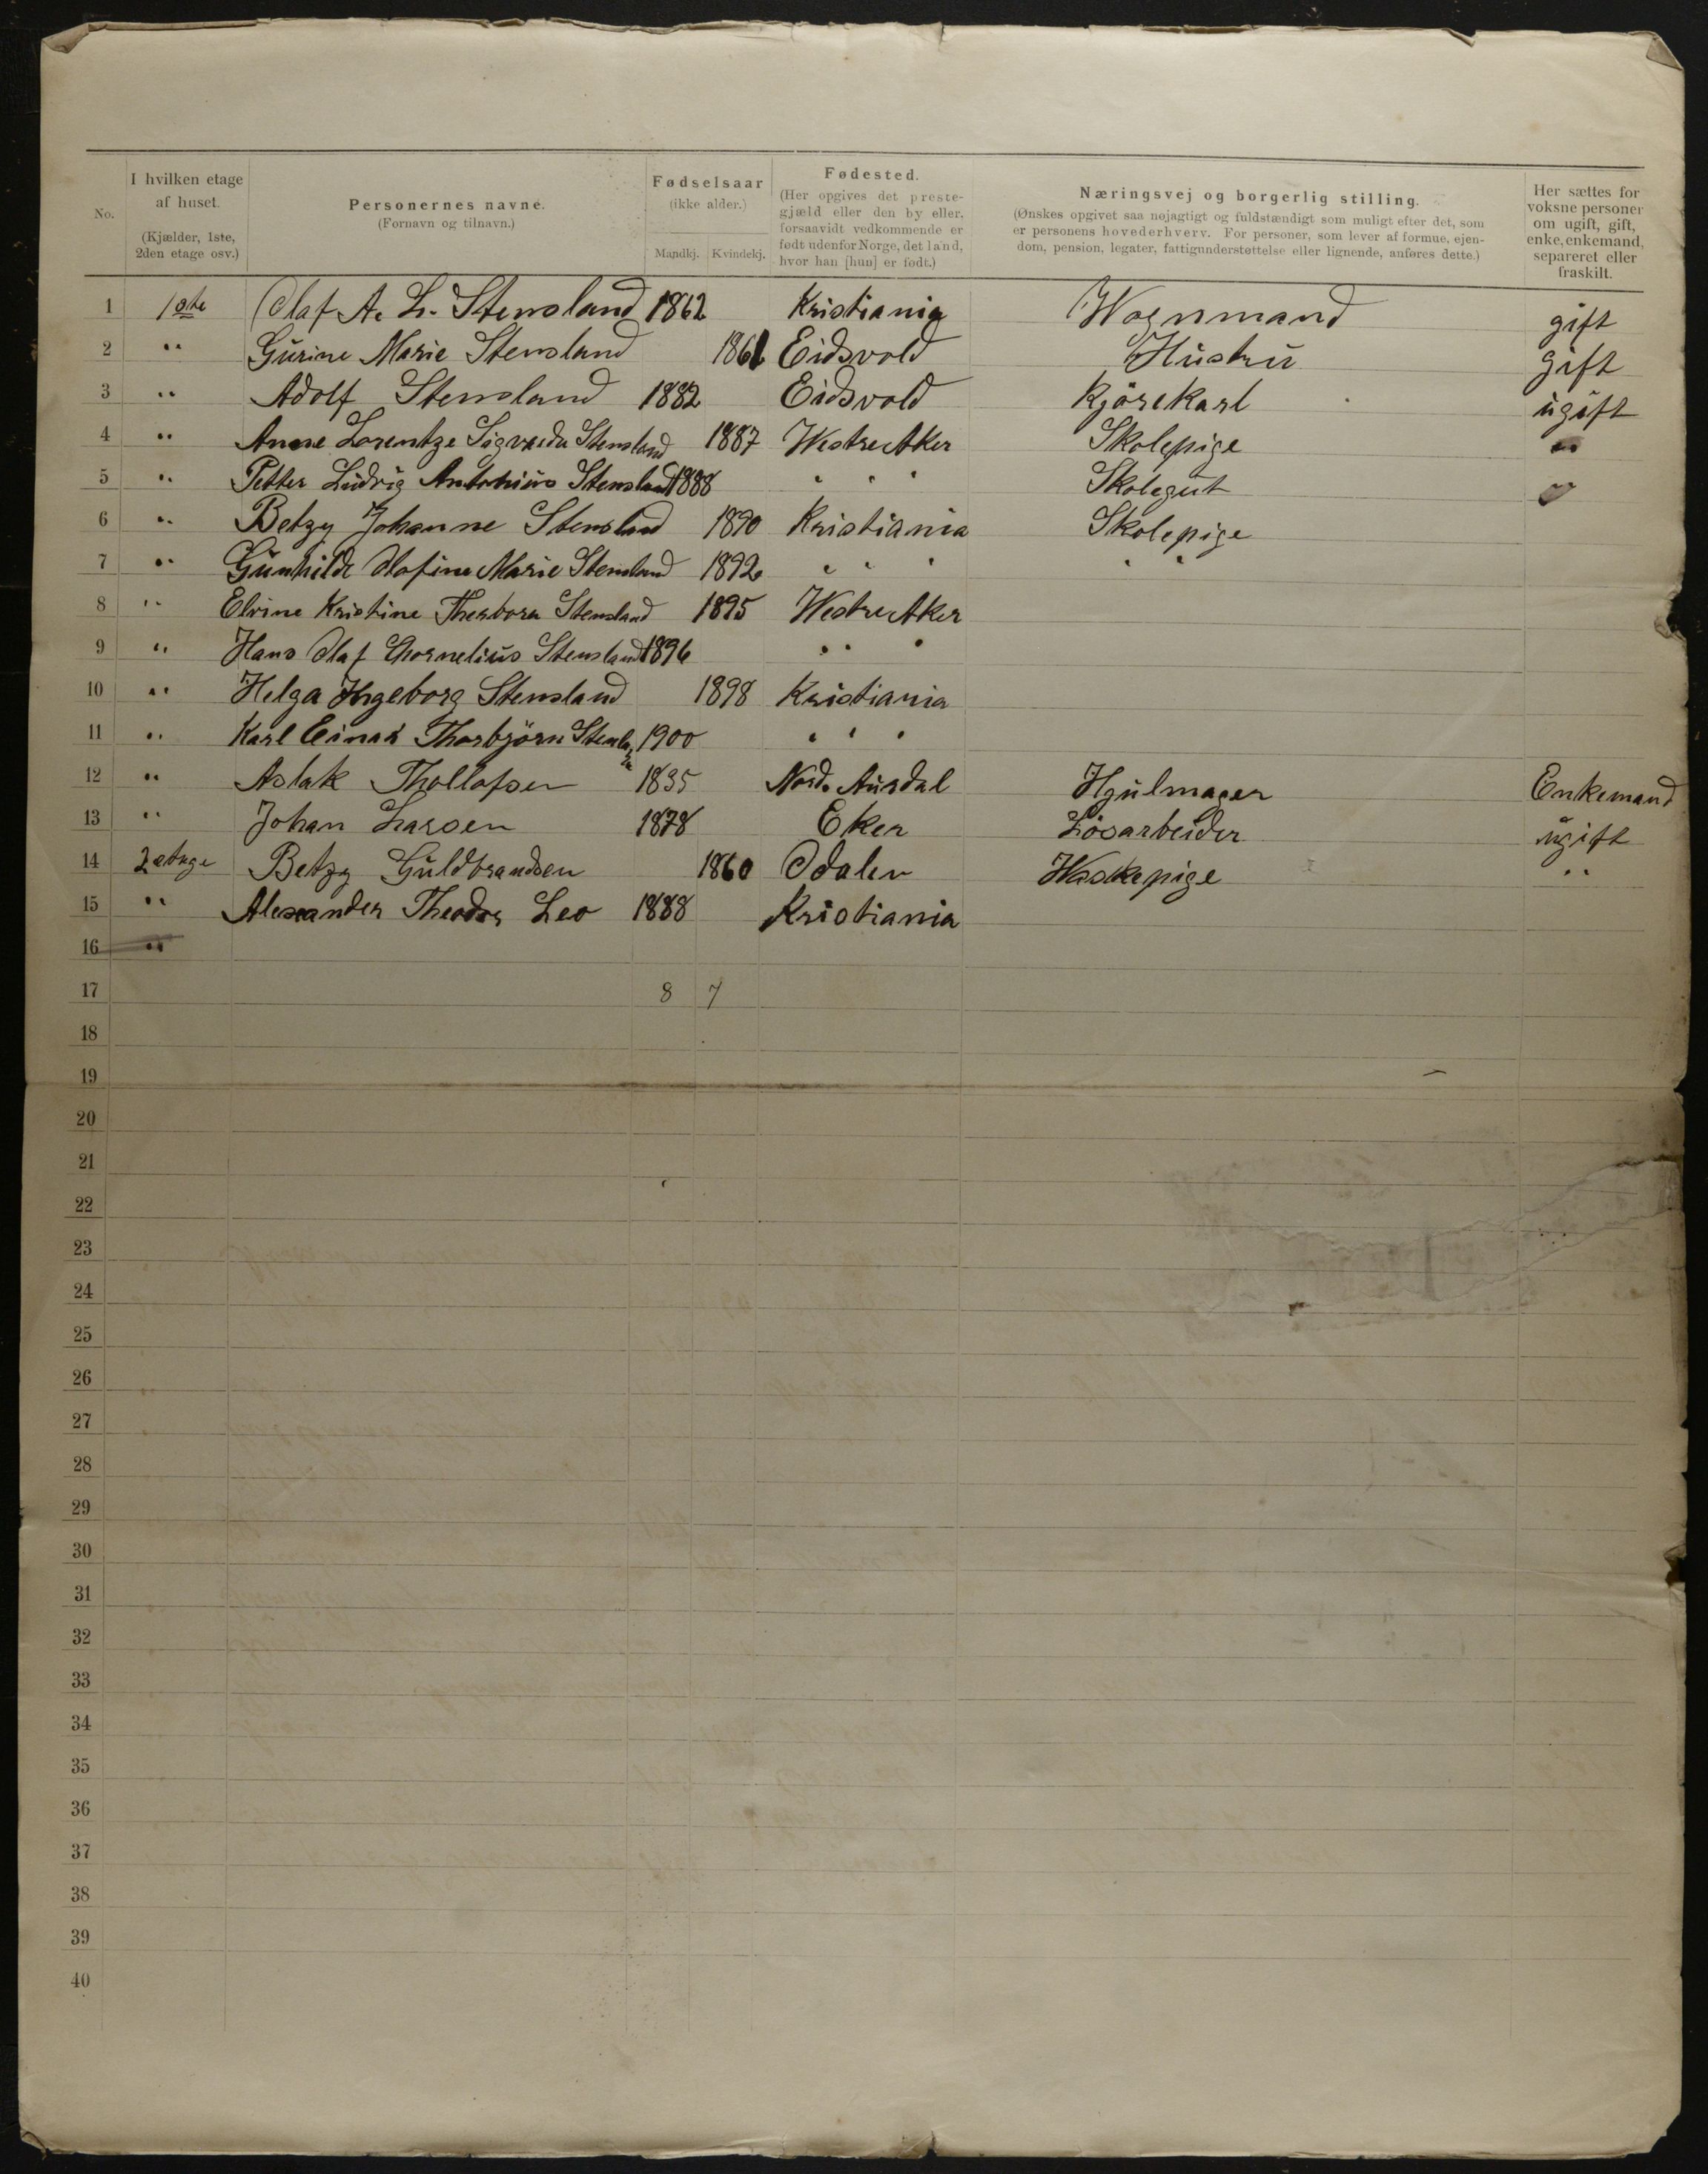 No.
I hvilken etage
af huset.
(Kjælder, 1ste,
2den etage osv.)
Personernes navne.
(Fornavn og tilnavn.)
Fødselsaar
(ikke alder.)
Mandkj. Kvindekj.
Fødested.
(Her opgives det preste-
gjæld eller den by eller,
forsaavidt vedkommende er
født udenfor Norge, det land,
hvor han [hun] er født.)
Næringsvej og borgerlig stilling.
(Ønskes opgivet saa nøjagtigt og fuldstændigt som muligt efter det, som
er personens hovederhverv. For personer, som lever af formue, ejen-
dom, pension, legater, fattigunderstøttelse eller lignende, anføres dette.)
Her sættes for
voksne personer
om ugift, gift,
enke, enkemand,
separeret eller
fraskilt.
1 1ste Olaf A. L. Stensland 1862 Kristiania Wognmand gift
2 " Gurine Marie Stensland 1861 Eidsvold Hustru gift
3 " Adolf Stensland 1882 Eidsvold Kjörekarl ugift
4 " Anne Lorentze Stensland 1887 Westre Aker Skolepige
5 " Petter Ludvig Antonius Stensland 1888 " " " Skolegut
6 " Betzy Johanne Stensland 1890 Kristiania Skolepige
7 " Gunhilde Olofine Marie Stensland 1892 " " " " "
8 " Elvine Kristine Stensland 1895 Westre Aker
9 " Hans Olaf Chornelius Stensland 1896 " " "
10 " Helga Ingeborg Stensland 1898 Kristiania
11 " Karl Einar Thorbjörn Stensland 1900 " " "
12 " Aslak Thollofsen 1835 Nord. Aurdal Hjulmager Enkemand
13 " Johan Larsen 1878 Eker Lösarbeider ugift
14 2 etage Betzy Guldbrandsen 1860 Odalen Waskepige "
15 " Alexander Theodor Leo 1888 Kristiania
16 "
17 8 7
18
19
20
21
22
23
24
25
26
27
28
29
30
31
32
33
34
35
36
37
38
39
40